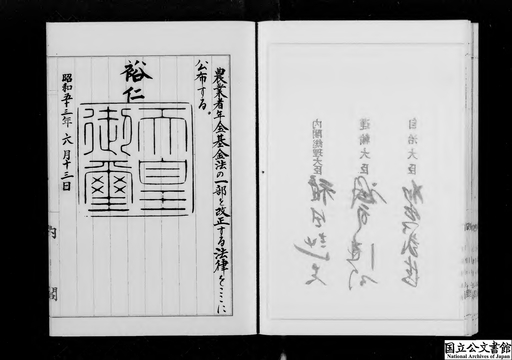 自治大臣
運輸大臣
内閣総理大臣
農業者年金基金法の一部を改正する法律をここに
公布する。
裕仁
天皇
御璽
昭和五十三年六月十三日
内閣
国立公文書館
National Archives of Japan